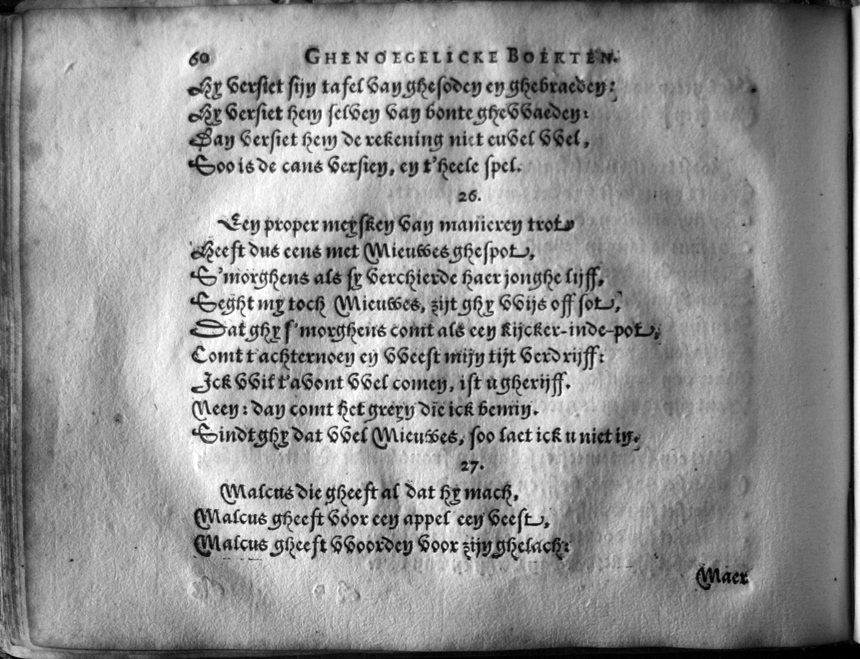 60 GHENOEGELICKE BOERTEN.
Hy versiet sijn tafel van ghesoden en ghebraeden:
Hy versiet hem selven van bonte ghevvaeden:
Dan versiet hem de rekening niet euvel vvel,
Soo is de cans versien, en t'heele spel.
26.
Een proper meysken van manieren trots
Heeft dus eens met Mieuwes ghespot,
S'morghens als sy verchierde haer jonghe lijff,
Seght my toch Mieuwes, zijt ghy vvijs off sot,
Dat ghy s'morghens comt als een kijcker-inde-pot,
Comt t'achternoen en vveest mijn tijt verdrijff:
Ick vvil t'avont vvel comen, ist u gherijff.
Neen: dan comt het greyn die ick bemin.
Sindt ghy dat vvel Mieuwes, soo laet ick u niet in.
27.
Malcus die gheeft al dat hy mach,
Malcus gheeft voor een appel een veest,
Malcus gheeft vvoorden voor zijn ghelach:
Maer